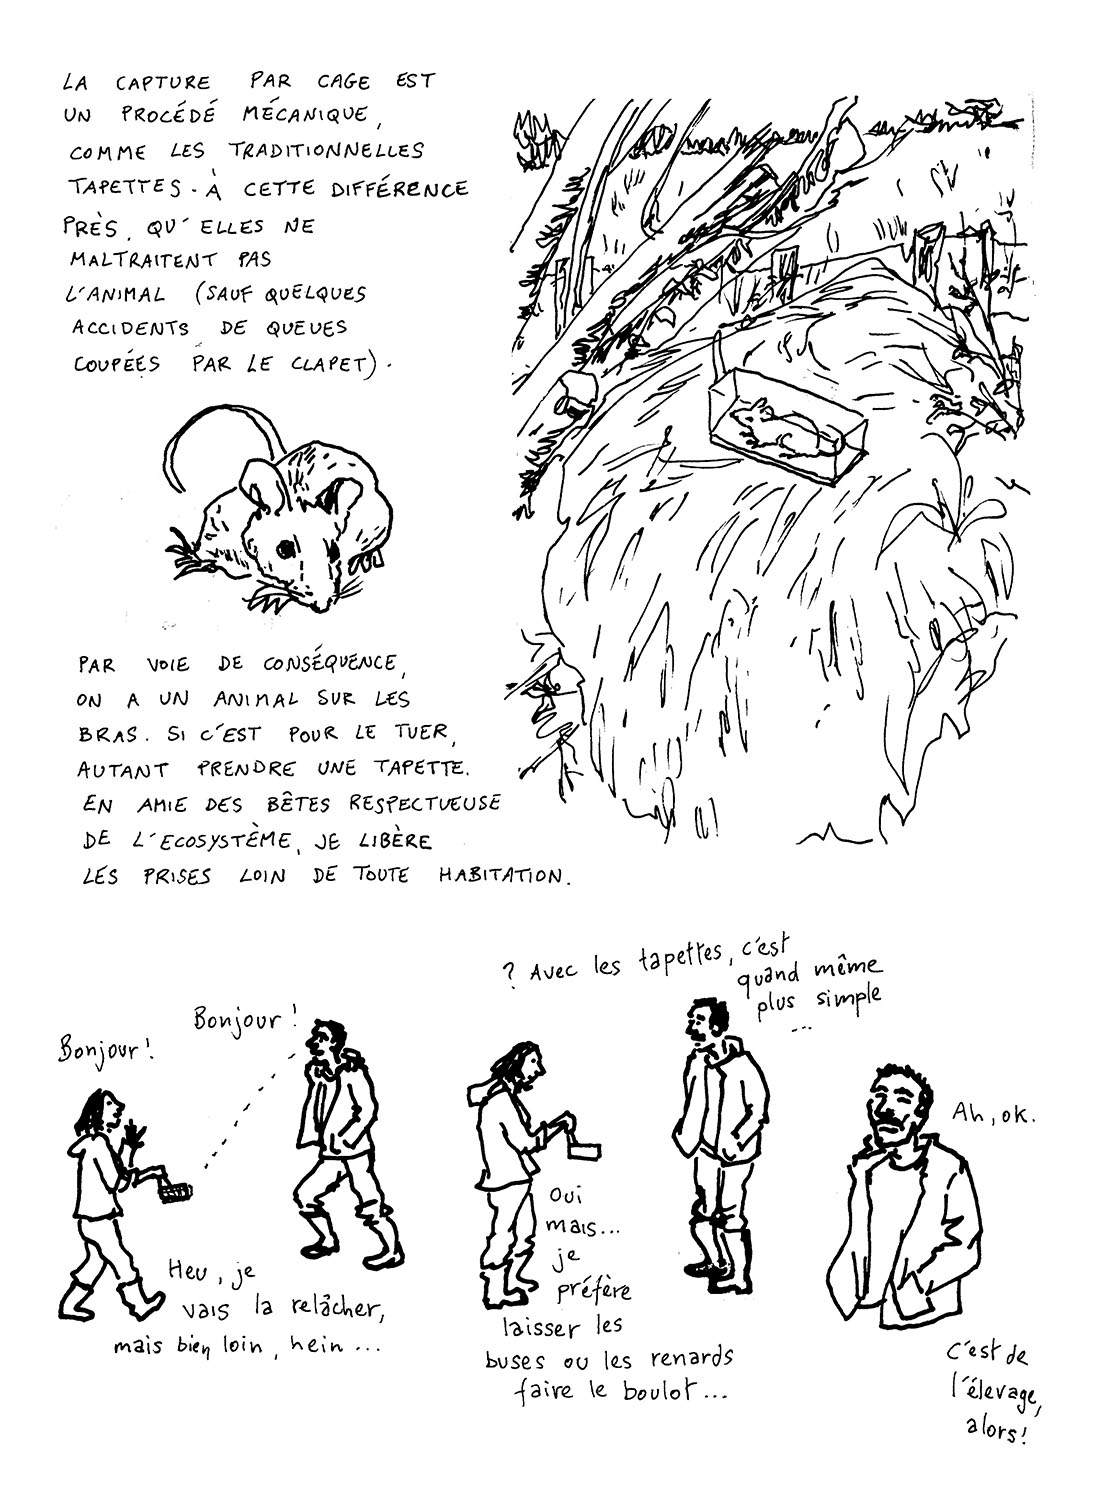 LA CAPTURE PAR CAGE EST
UN PROCÉDÉ MÉCANIQUE,
COMME LES TRADITIONNELLES
TAPETTES. À CETTE DIFFÉRENCE
PRÈS, QU'ELLES NE
MALTRAITENT PAS
L'ANIMAL (SAUF QUELQUES
ACCIDENTS DE QUEUES
COUPÉES PAR LE CLAPET).
PAR VOIE DE CONSÉQUENCE,
ON A UN ANIMAL SUR LES
BRAS. SI C'EST POUR LE TUER,
AUTANT PRENDRE UNE TAPETTE.
EN AMIE DES BÊTES RESPECTUEUSE
DE L'ECOSYSTÈME, JE LIBÈRE
LES PRISES LOIN DE TOUTE HABITATION.
Bonjour!
Bonjour!
Heu, je
vais la relâcher,
mais bien loin, hein...
? Avec les tapettes, c'est
quand même
plus simple
...
Oui
mais...
je
préfère
laisser les
buses ou les renards
faire le boulot...
Ah, ok.
C'est de
l'élevage,
alors!